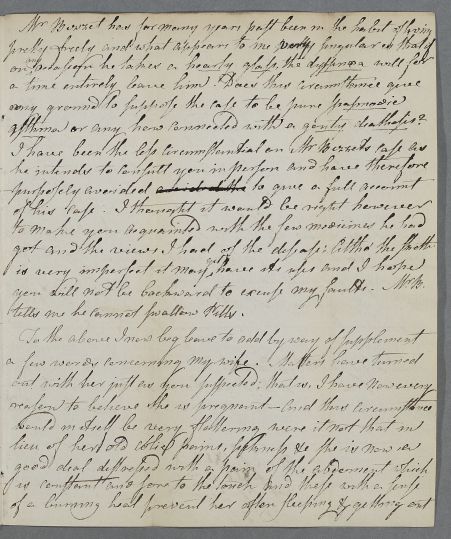 Mr Bisset has for many years past been in the habit of living
pretty freely and what appears to me very singular is that if
on any occasion he takes a hearty glass, the dyspnœa will for
a time entirely leave him. Does this circumstance give
any ground to suppose the case to be pure spasmodic
asthma or any how connected with a gouty diathesis?
I have been the less circumstantial on Mr Bissets case as
he intends to consult you in person and have therefore
purposely avoided to give a full account
of his case. I thought it would be right however
to make you acquainted with the few medicines he had
got and the views I had of the disease: Altho' the sketch
is very imperfect it may yet have its uses and I hope
you will not be backward to excuse my faults. Mr B.
tells me he cannot swallow Pills.
To the above I now beg leave to add by way of supplement
a few words concerning my wife. Matters have turned
out with her just as you suspected; that is, I have now every
reason to believe she is pregnant – and this circumstance
would in itself be very flattering were it not that in
lieu of her old colics pains, sickness &c she is now a
good deal distressed with a pain of the abdomen which
is constant and sore to the touch and these with a sense
of a burning heat prevent her often sleeping & getting out